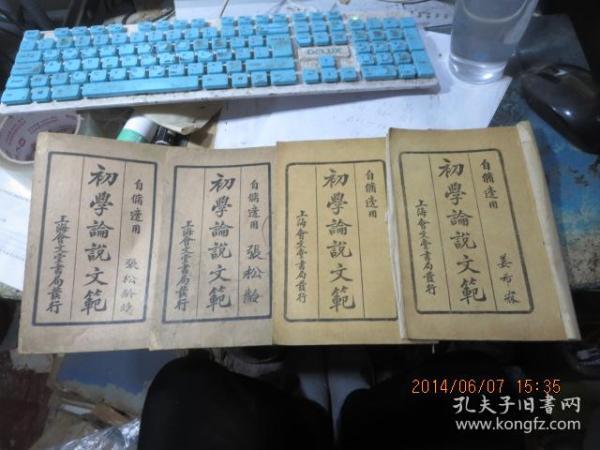 DELUX
自備邊用
初學論說文範
張松齡
上海會文堂書局發行
自備邊用
初學論說文範
張松齡
上海會文堂書局發行
自備邊用
初學論說文範
上海會文堂書局發行
自備邊用
初學論說文範
姜
上海會文堂書局發行
2014/06/07 15:35
孔夫子旧书网
www.kongfz.com